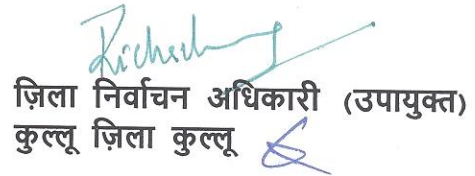 ज़िला निर्वाचन अधिकारी (उपायुक्त)
कुल्लू ज़िला कुल्लू